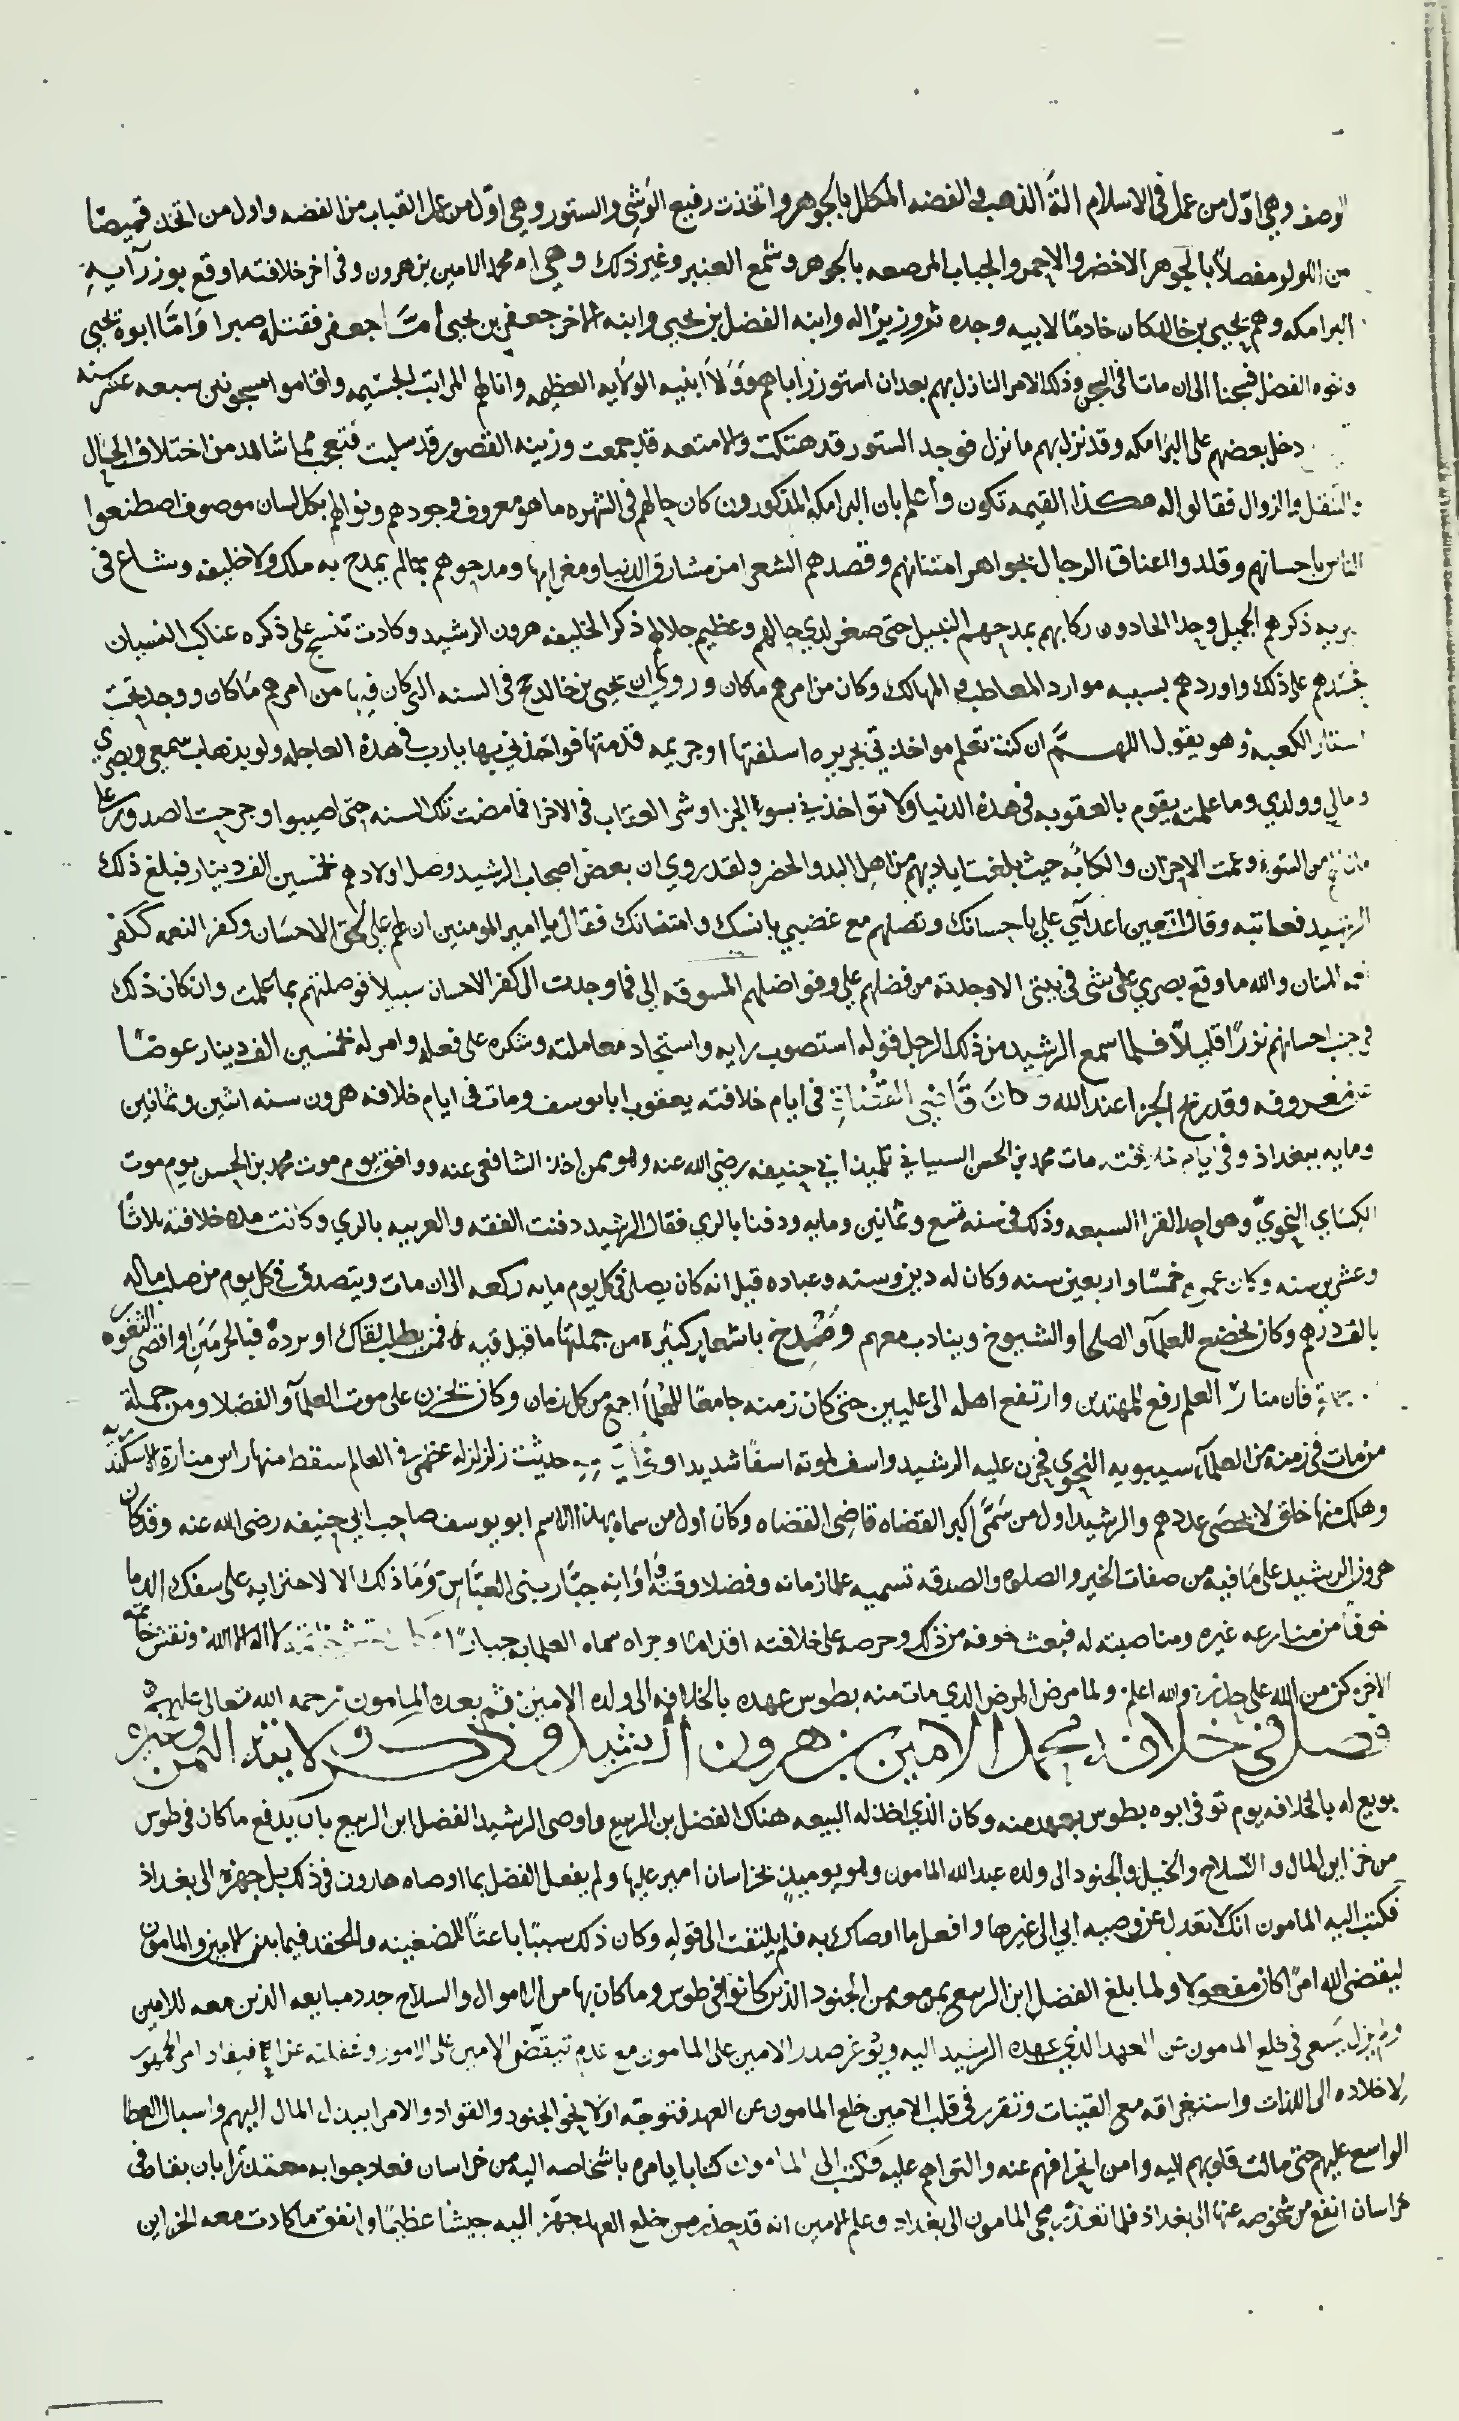 الوصف وهي اول من عمل في الاسلام الة الذهب والفضه المكلل بالجوهر واتخذت رفيع الوشي والستور وهي اول من عمل القباب من الفضه واول من اتخذ قميصا
من اللولو مفصلا بالجوهر الاخضر والاحمر والجباب المرصعه بالجوهر وشمع العنبر وغير ذلك وهي ام محمد الامين بن هرون وفي اخر خلافته اوقع بوزرايه
البرامكه وهم يحيى بن خالد كان خادما لابيه وجده ثم وزيرا له وابنه الفضل بن يحيى وابنه الاخر جعفر بن يحيى اما جعفر فقتله صبرا واما ابوه يحيى
واخوه الفضل فسجنا الى ان ماتا في السجن وذلك الامر النازل بهم بعد ان استوزر اباهم وولا ابنيه الولايه العظيمه وانالهم المراتب الجسيمه واقاموا مسجونين سبعه عشر سنه
دخل بعضهم على البرامكه وقد نزل بهم ما نزل فوجد الستور قد هتكت والامتعه قد جمعت وزينه القصور قد سلبت فتعجب مما شاهد من اختلاف الحال
والتنقل والزوال فقالوا له هكذا القيمه تكون واعلم بان البرامكه المذكورون كان حالهم في الشهره ما هو معروف وجودهم ونوالهم بكل لسان موصوف اصطنعوا
الناس باحسانهم وقلدوا اعناق الرجال بجواهر امتنانهم وقصدهم الشعرا من مشارق الدنيا ومغاربها ومدحوهم بمالم يمدح به ملك ولا خليفه وشاع في
البريه ذكرهم الجميل وحدا الحادون ركابهم بمدحهم النبيل حتى صغر لدي حالهم وعظيم جلالهم ذكر الخليفه هرون الرشيد وكادت تنسج على ذكره عناكب النسيان
فحسدهم على ذلك واوردهم بسببه موارد المعاطب والمهالك وكان من امرهم ماكان وروي ان يحيى بن خالد حج في السنه التي كان فيها من امرهم ماكان ووجد تحت
استار الكعبه وهو يقول اللهم ان كنت تعلم مواخذتي بجريره اسلفتها او جريمه قدمتها فواخذني بها يا رب في هذه العاجله ولو بذهاب سمعي وبصري
ومالي وولدي وما علمت يقوم بالعقوبه في هذه الدنيا ولا تواخذني بسوء الجزا وشر العقاب في الاخرا فما مضت تلك السنه حتى اصيبوا وحرجت الصدور على
مانالهم من السوء وعمت الاحزان والكابه حيث بلغت اياديهم من اهل البدو والحضر ولقد روي ان بعض اصحاب الرشيد وصل اولادهم بخمسين الف دينار فبلغ ذلك
الرشيد فعاتبه وقال اتعين اعدآي علي باحسانك وتصلهم مع غضبي بانسك وامتنانك فقال يا امير المومنين ان لهم علي حق الاحسان وكفر النعمه ككفر
نعمه المنان والله ما وقع بصري على شى في بيتي الا وجدته من فضلهم علي وفواضلهم المسوقه الي فما وجدت الى كفر الاحسان سبيلا فوصلتهم بما علمت وان كان ذلك
في جنب احسانهم نزرا قليلا فلما سمع الرشيد من ذلك الرجل قوله استصوب رايه واستجاد معاملته وشكره على فعله وامر له بخمسين الف دينار عوضا
عن معروفه وقد ربح الجزا عند الله وكان قاضي القضاة في ايام خلافته يعقوب ابا يوسف ومات في ايام خلافه هرون سنه اثنين وثمانين
ومايه ببغداذ وفي ايام خلافته مات محمد بن الحسن الشيباني تلميذ ابي حنيفه رضي الله عنه وهو ممن اخذ الشافعي عنه ووافق يوم موت محمد بن الحسن يوم موت
الكساي النحوي وهو احد القرا السبعه وذلك في سنه تسع وثمانين ومايه ودفنا بالري فقال الرشيد دفنت الفقه والعربيه بالري وكانت مده خلافته ثلاثا
وعشرين سنه وكان عمره خمسا واربعين سنه وكان له دين وسنه وعباده قيل انه كان يصلي في كل يوم مايه ركعه الى ان مات ويتصدق في كل يوم من صلب ماله
بالف درهم وكان يخضع للعلمآ والصلحا والشيوخ ويتادب معهم ومدح باشعار كثيرة من جملتها ما قيل فيه فمن يطلب لقاك او يرده فبالحرمين او اقصى الثغور
فان منار العلم رفع للمهتدين وارتفع اهله الى عليين حتى كان زمنه جامعا للعلما اجمع من كل زمان وكان يحزن على موت العلمآ والفضلا ومن جملة
من مات في زمنه من العلمآ سيبويه النحوي فحزن عليه الرشيد واسف لموته اسفا شديدا وفي ايامه حدثت زلزله عظمى في العالم سقط منها راس منارة الاسكندريه
وهلك منها خلق لا يحصى عددهم والرشيد اول من سمى اكبر القضاه قاضي القضاه وكان اول من سماه بهذا الاسم ابو يوسف صاحب ابي حنيفه رضي الله عنه وقد كان
هرون الرشيد على ما فيه من صفات الخير والصلوه والصدقه تسميه علما زمانه وفضلا وقته واوانه جبار بني العباس وما ذلك الا لاجترايه على سفك الدما
خوفا من منازعه غيره ومناصبته له فبعث خوفه من ذلك وحرصه على خلافته اقداما وجراه سماه العلما به جبارا وكان نقش خاتمه لا اله الا الله ونقش خاتمه
الاخر كن من الله على حذر والله اعلم ولما مرض المرض الذي مات منه بطوس عهده بالخلافه الى ولده الامين ثم بعده المامون رحمه الله تعالى عليهم
فصل في خلافه محمد الامين بن هرون الرشيد
بويع له بالخلافه يوم توفي ابوه بطوس بعهد منه وكان الذي اخذ له البيعه هناك الفضل بن الربيع واوصى الرشيد الفضل ابن الربيع بان يدفع ما كان في طوس
من خزاين المال والسلاح والخيل والجنود الى ولده عبد الله المامون وهو يوميذ بخراسان امير عليها ولم يفعل الفضل بما اوصاه هارون في ذلك بل جهزه الى بغداذ
فكتب اليه المامون انك لا تعدل عن وصيه ابي الى غيرها وافعل ما اوصاك به فلم يلتفت الى قوله وكان ذلك سببا باعثا للضغينه والحقد فيما بين الامين والمامون
ليقضي الله امرا كان مفعولا ولما بلغ الفضل ابن الربيع بمن معه من الجنود الذين كانوا في طوس وما كان بها من الاموال والسلاح جدد مبايعه الذين معه للامين
ولم يزل يسعى في خلع المامون عن العهد الذي عهده الرشيد اليه ويوغر صدر الامين على المامون مع عدم تيقظ الامين على الامور وغفلته
لاخلاده الى اللذات واستغراقه مع القينات وتقرر في قلب الامين خلع المامون عن العهد فتوجه اولا نحو الجنود والقواد والامرا ببذل المال اليهم واسبال العطا
الواسع عليهم حتى مالت قلوبهم اليه وامن انحرافهم عنه والتواهم عليه فكتب الى المامون كتابا يامره باشخاصه اليه من خراسان فعاد جوابه معتذرا بان بقاه في
خراسان انفع من شخوصه عنها الى بغداذ فلما تعذر مجى المامون الى بغداد وعلم الامين انه قد حذر من خلع العهد جهز اليه جيشا عظيما وانفق ما كادت معه الخزاين